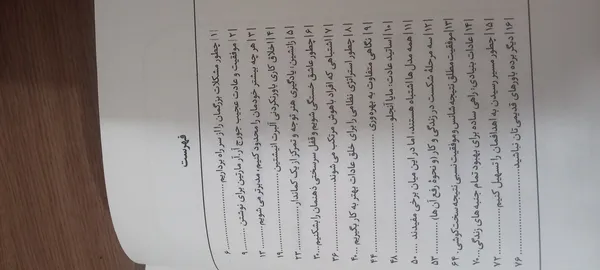 فهرست
۱ | چطور مشکلات بزرگمان را از سر راه برداریم ........ ۶
۲ | موفقیت و عادت عجیب جورج آر.آر مارتین برای نوشتن ........ ۹
۳ | هر چه بیشتر خودمان را محدود کنیم، مدبرتر می شویم ........ ۱۳
۴ | اخلاق کاری باورنکردنی آلبرت انیشتین ........ ۱۹
۵ | زانشین: یادگیری هنر توجه و تمرکز از یک کماندار ........ ۲۳
۶ | چطور عاشق خستگی شویم و قفل سرسختی ذهنمان را بشکنیم ........ ۳۰
۷ | اشتباهی که افراد باهوش مرتکب می شوند ........ ۳۶
۸ | چطور استراتژی نظامی را برای خلق عادات بهتر به کار بگیریم ........ ۴۰
۹ | نگاهی متفاوت به بهره وری ........ ۴۴
۱۰ | اساتید عادت: مایا آنجلو ........ ۴۸
۱۱ | همه مدل ها اشتباه هستند، اما در این میان برخی مفیدند ........ ۵۰
۱۲ | سه مرحلهٔ شکست در زندگی و کار (و نحوهٔ رفع آن ها) ........ ۵۳
۱۳ | موفقیت مطلق نتیجه شانس و موفقیت نسبی نتیجه سخت کوشی ........ ۶۴
۱۴ | عادات بنیادی: راهی ساده برای بهبود تمام جنبه های زندگی ........ ۷۰
۱۵ | چطور مسیر رسیدن به اهدافمان را تسهیل کنیم ........ ۷۲
۱۶ | دیگر برده باورهای قدیمی تان نباشید ........ ۷۶